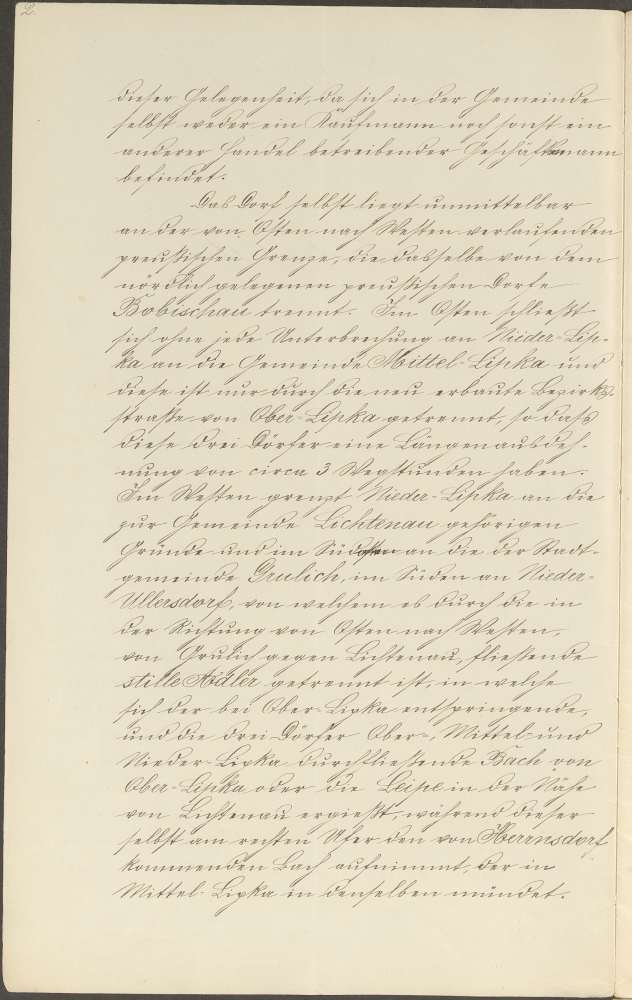 2.
dieser Gelegenheit, da sich in der Gemeinde
selbst weder ein Kaufmann noch sonst ein
anderer Handel betreibender Geschäftsmann
befindet.
Das Dorf selbst liegt unmittelbar
an der von Osten nach Westen verlaufenden
preußischen Grenze, die dasselbe von dem
nördlich gelegenen preußischen Dorfe
Bobischau trennt. Im Osten schließt
sich ohne jede Unterbrechung an Nieder-Lip-
ka an die Gemeinde Mittel-Lipka und
diese ist nur durch die neu erbaute Bezirks-
straße von Ober-Lipka getrennt, so daß
diese drei Dörfer eine Längenausdeh-
nung von circa 3 Wegstunden haben.
Im Westen grenzt Nieder-Lipka an die
zur Gemeinde Lichtenau gehörigen
Gründe und im Südosten an die der Stadt-
gemeinde Grulich, im Süden an Nieder-
Ullersdorf, von welchem es durch die in
der Richtung von Osten nach Westen,
von Grulich gegen Lichtenau, fließende
stille Adler getrennt ist, in welche
sich der bei Ober-Lipka entspringende,
und die drei Dörfer Ober-, Mittel- und
Nieder-Lipka durchfließende Bach von
Ober-Lipka oder die Leipe in der Nähe
von Lichtenau ergießt, während dieser
selbst am rechten Ufer den von Herrnsdorf
kommenden Bach aufnimmt, der in
Mittel-Lipka in denselben mündet.